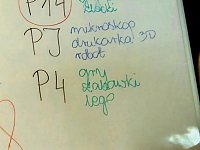 P14
klocki
PJ
mikroskop
drukarka 3D
robot
P4
gry
zabawki
lego